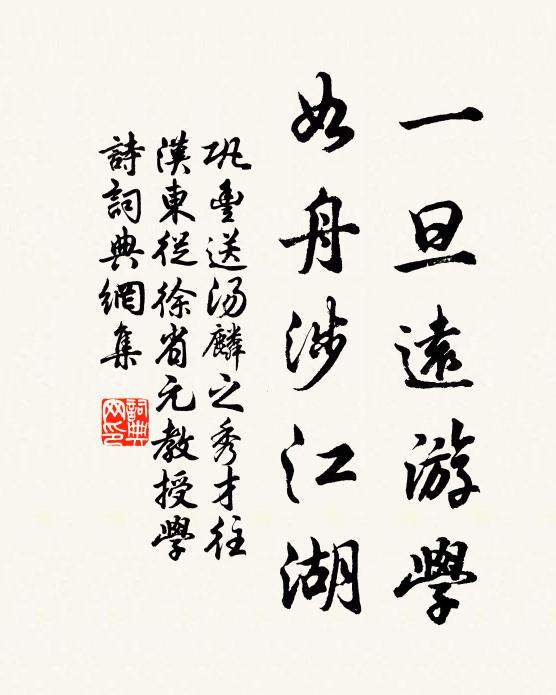 一旦遠游學
如舟涉江湖
巩豐送汤麟之秀才往
漢東從徐省元教授學
詩詞典網集
詞典
网印